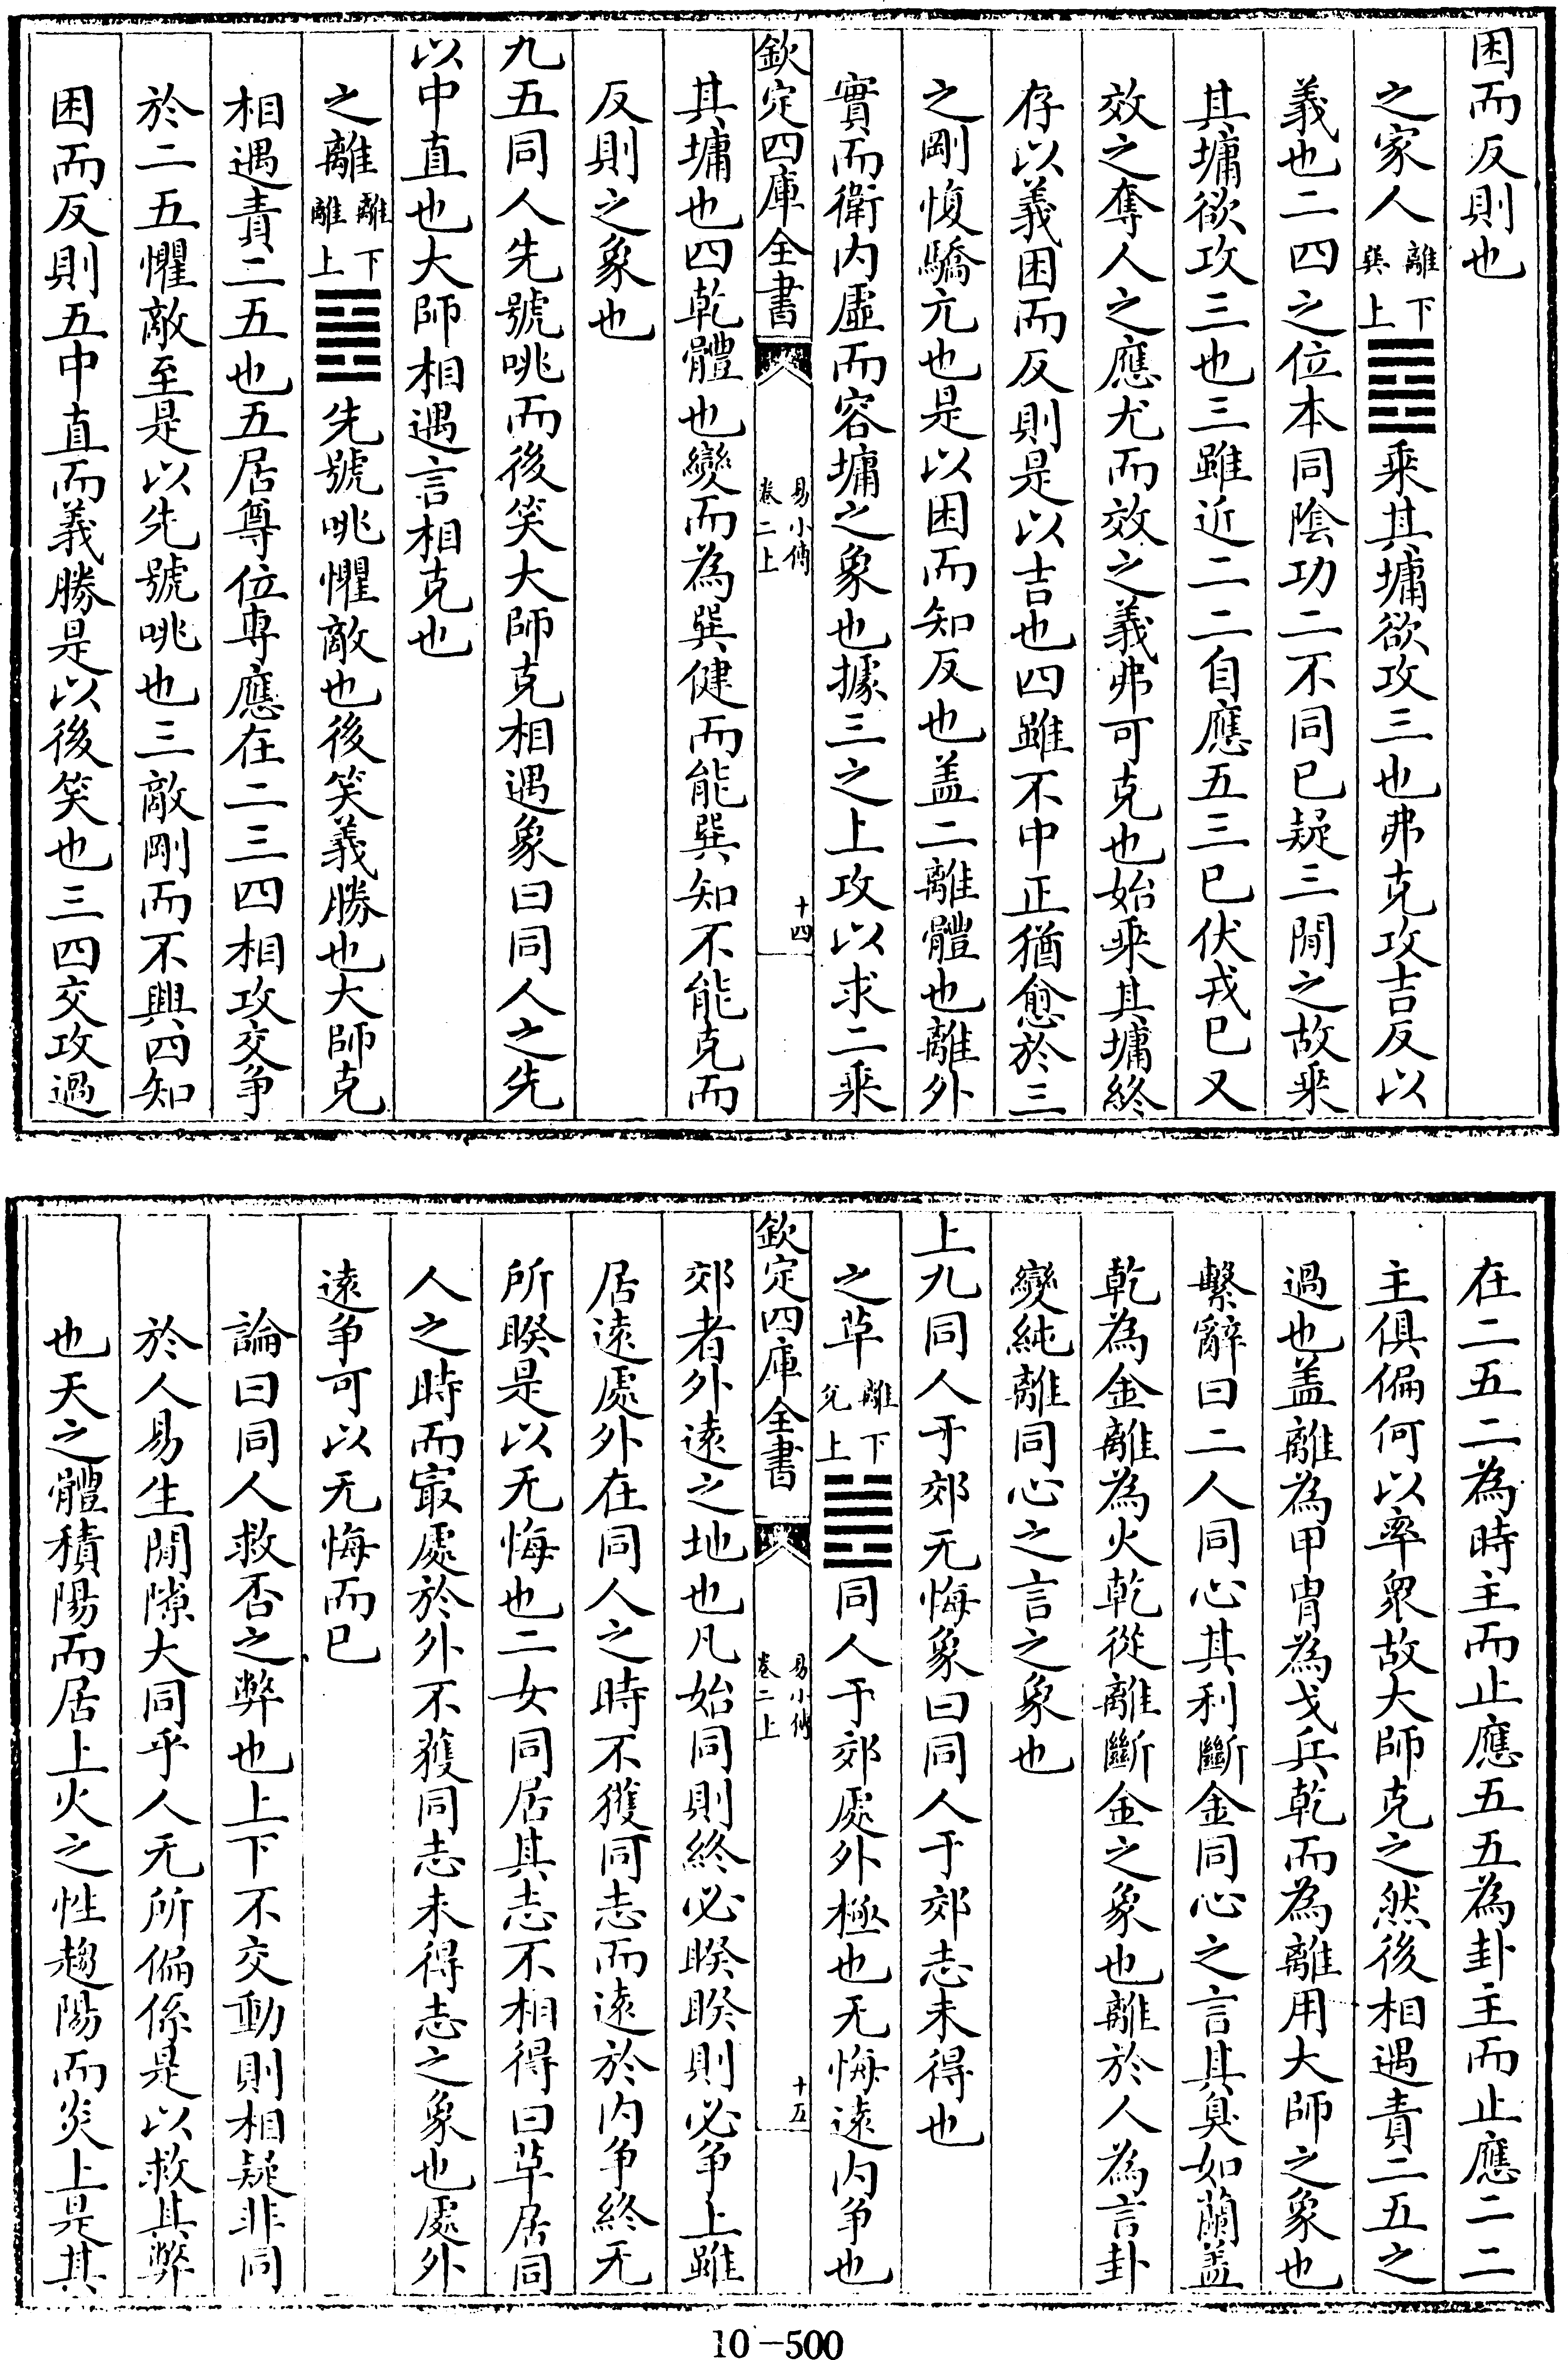 困而反則也
之家人離下巽上䷤乘其墉欲攻三也弗克攻吉反以
義也二四之位本同陰功二不同已疑三閒之故乘
其墉欲攻三也三雖近二二自應五三已伏戎已又
效之奪人之應尤而效之義弗可克也始乘其墉終
存以義困而反則是以吉也四雖不中正猶愈於三
之剛愎驕亢也是以困而知反也盖二離體也離外
實而衛内虛而容墉之象也據三之上攻以求二乘
欽定四庫全書 易小傳卷二上 十四
其墉也四乾體也變而為巽健而能巽知不能克而
反則之象也
九五同人先號咷而後笑大師克相遇象曰同人之先
以中直也大師相遇言相克也
之離離下離上䷝先號咷懼敵也後笑義勝也大師克
相遇責二五也五居尊位專應在二三四相攻交爭
於二五懼敵至是以先號咷也三敵剛而不興四知
困而反則五中直而義勝是以後笑也三四交攻過
在二五二為時主而止應五五為卦主而止應二二
主俱偏何以率衆故大師克之然後相遇責二五之
過也盖離為甲胄為戈兵乾而為離用大師之象也
繫辭曰二人同心其利斷金同心之言其臭如蘭盖
乾為金離為火乾從離斷金之象也離於人為言卦
變純離同心之言之象也
上九同人于郊无悔象曰同人于郊志未得也
之革離下兌上䷰同人于郊處外極也无悔遠内爭也
欽定四庫全書 易小傳卷二上 十五
郊者外遠之地也凡始同則終必睽睽則必爭上雖
居遠處外在同人之時不獲同志而遠於内爭終无
所睽是以无悔也二女同居其志不相得曰革居同
人之時而㝡處於外不獲同志未得志之象也處外
遠爭可以无悔而已
論曰同人救否之弊也上下不交動則相疑非同
於人易生閒隙大同乎人无所偏係是以救其弊
也天之體積陽而居上火之性趨陽而炎上是其
10-500